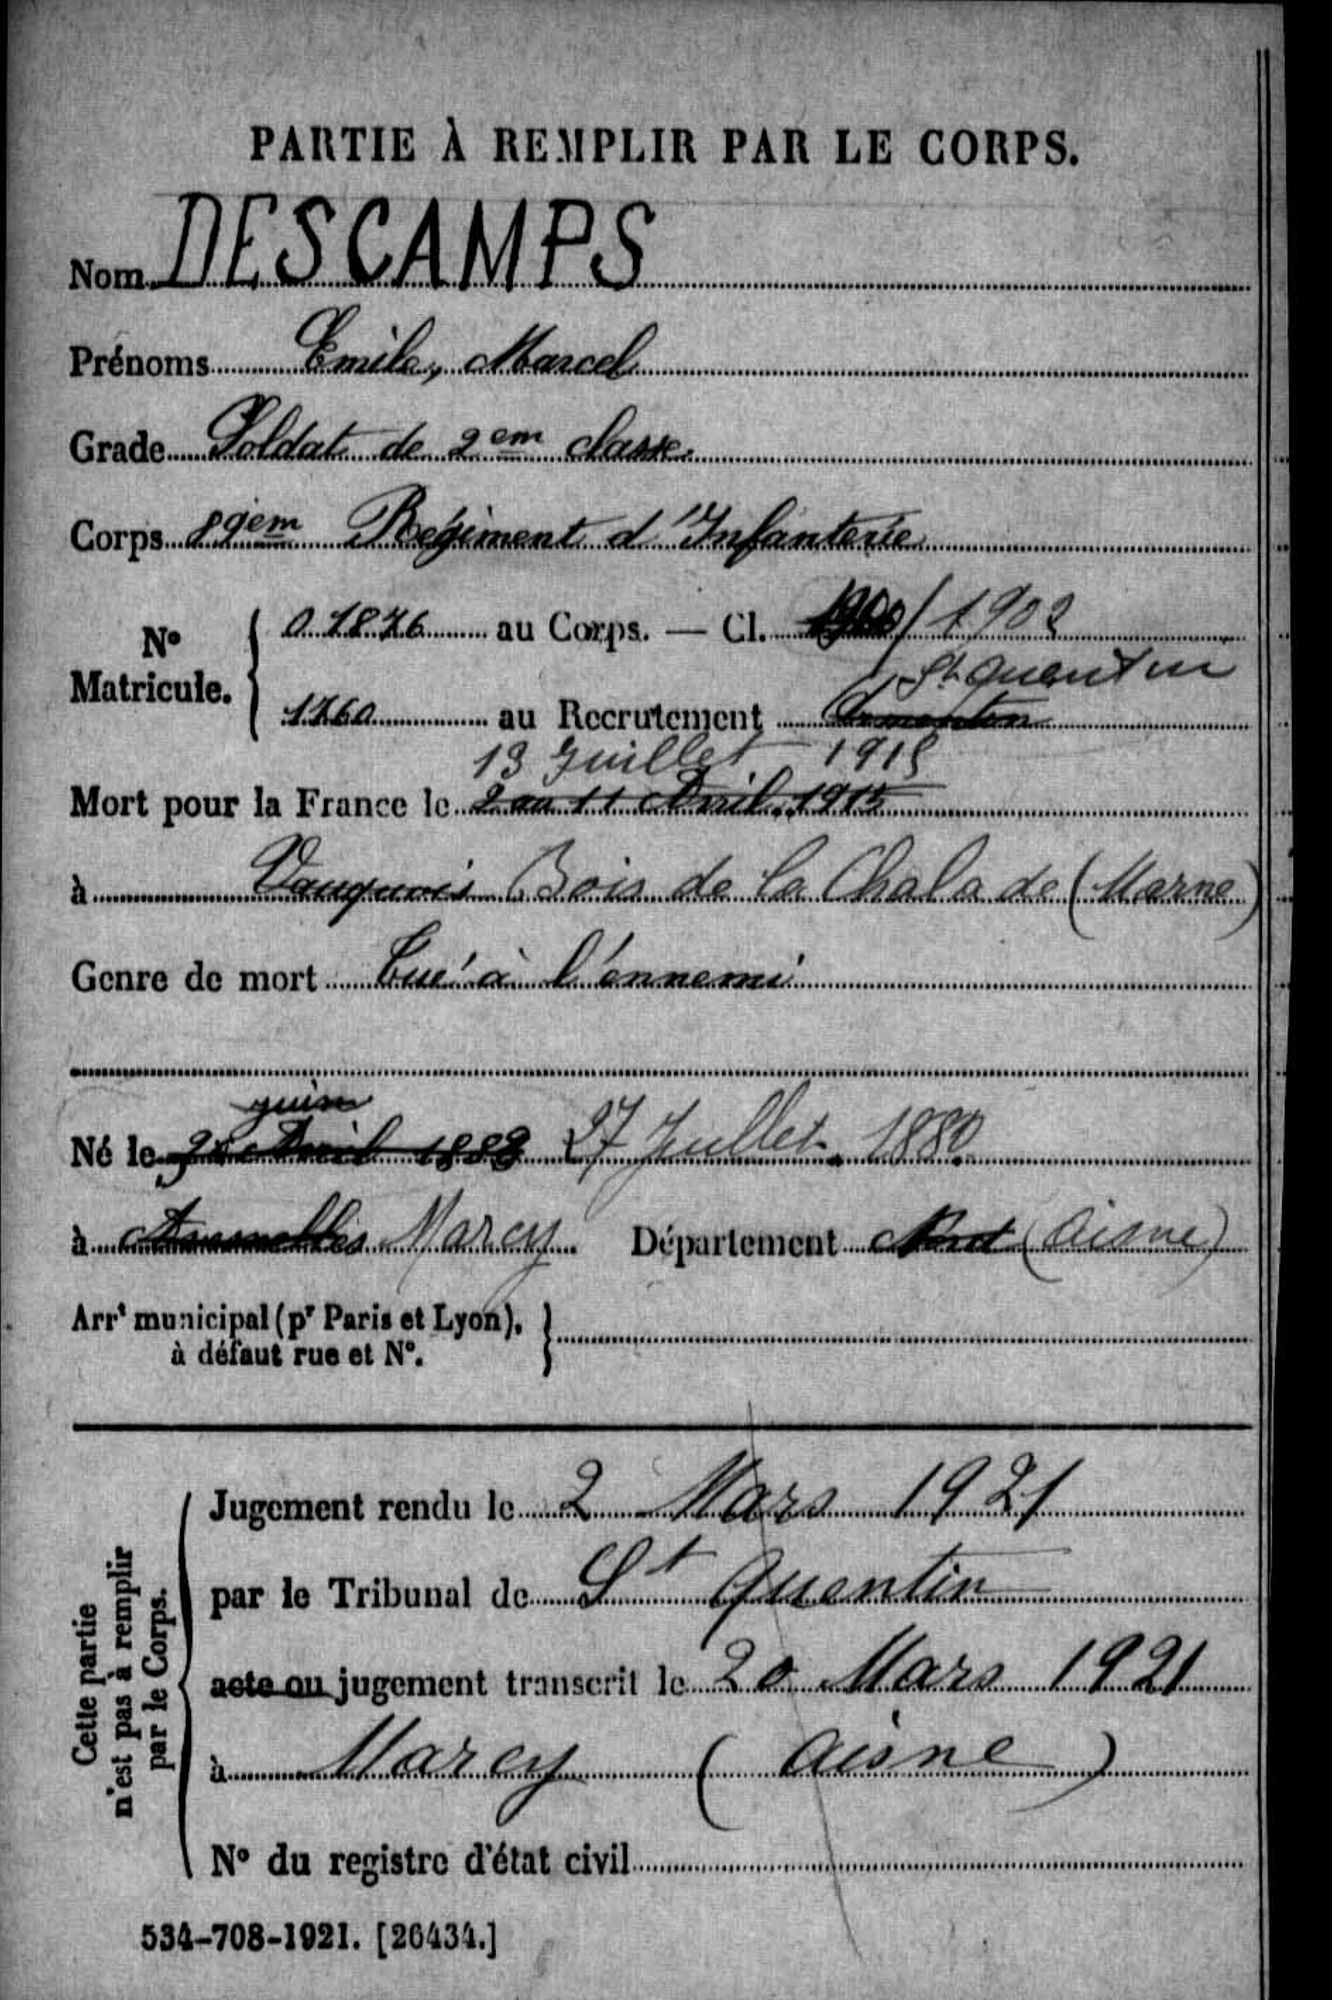 PARTIE À REMPLIR PAR LE CORPS.
Nom DESCAMPS
Prénoms Emile, Marcel
Grade Soldat de 2em classe
Corps 89em Régiment d'Infanterie
No Matricule. 0.1876 au Corps. — Cl. 1900 / 1902
St Quentin
1760 au Recrutement
13 Juillet 1915
Mort pour la France le 2 au 11 Avril 1915
à Vauquois Bois de la Chalade (Marne)
Genre de mort Tué à l'ennemi
juin
Né le Avril 1882 27 Juillet 1880
à Marcy Département Nord (Aisne)
Arrt municipal (pr Paris et Lyon), à défaut rue et No.
Cette partie n'est pas à remplir par le Corps.
Jugement rendu le 2 Mars 1921
par le Tribunal de St Quentin
acte ou jugement transcrit le 20 Mars 1921
à Marcy (Aisne)
No du registre d'état civil
534-708-1921. [26434.]